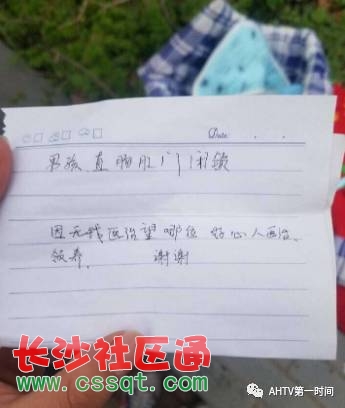 Date: . .
男孩 直肠肛门闭锁
因无钱医治望哪位好心人医治、
领养. 谢谢
长沙社区通
www.cssqt.com
AHTV第一时间